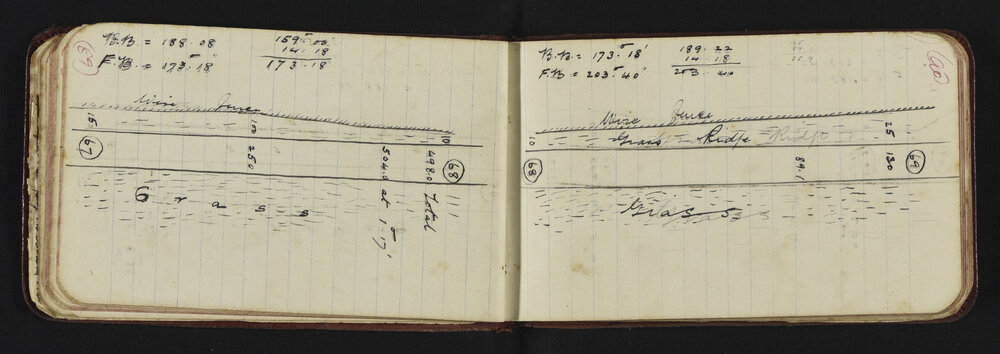 (89)
B.B. = 188.08
F.B. = 173°18'
159.00
14.18
173.18
Wire Fence
15
10
10
67
250
504.0 at 1°.17'
498.0 Total
68
Grass
90
B.B. = 173°18'
F.B. = 203°40'
189.22
14.18
203.40
Wire Fence
Grass Ridge Ridge
10
25
68
89.1
130
69
Grass